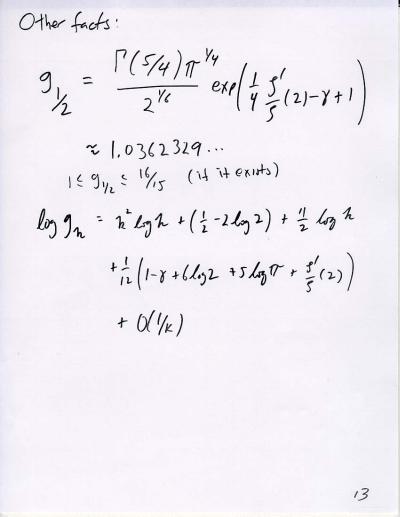 Other facts:
g_{1/2} = \frac{Γ(5/4) π^{1/4}}{2^{1/6}} exp(\frac{1}{4} \frac{ζ'}{ζ}(2) - γ + 1)
≈ 1.0362329...
1 ≤ g_{1/2} ≤ 16/15 (if it exists)
log g_k = k² log k + (\frac{1}{2} - 2 log 2) + \frac{11}{2} log k
+ \frac{1}{12} (1 - γ + 6 log 2 + 5 log π + \frac{ζ'}{ζ}(2))
+ O(1/k)
13